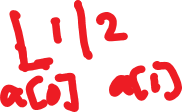 1|2
a[0] a[1]